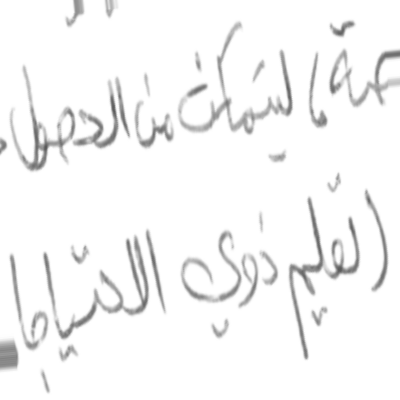 ليتمكن من الحصول
التعليم ذوي الاحتياجا